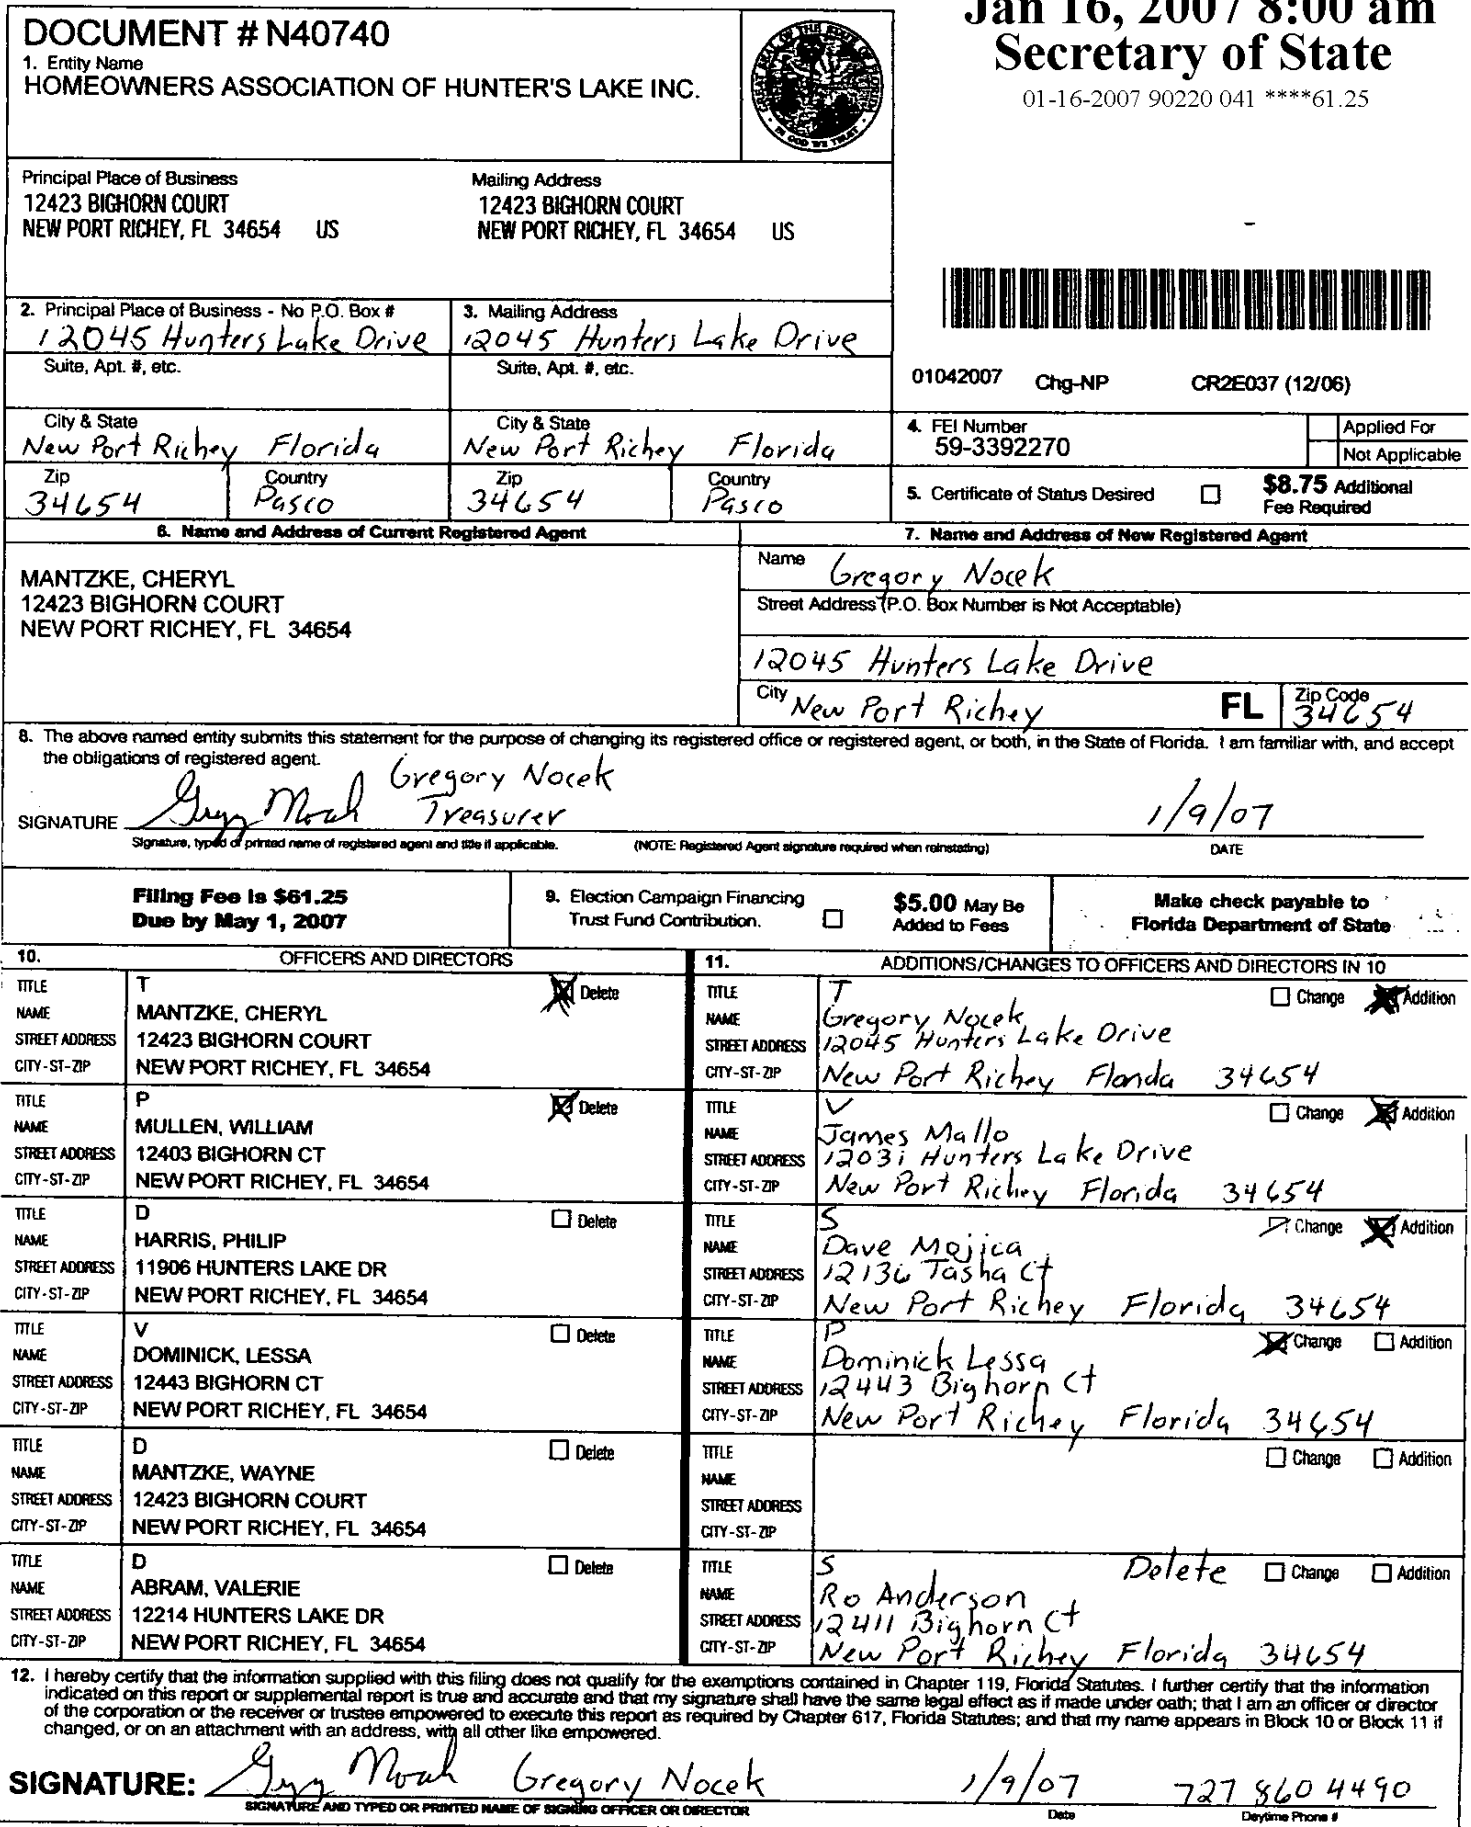 Jan 16, 2007 8:00 am
Secretary of State
01-16-2007 90220 041 ****61.25
DOCUMENT # N40740
1. Entity Name
HOMEOWNERS ASSOCIATION OF HUNTER'S LAKE INC.
GREAT SEAL OF THE STATE OF FLORIDA
IN GOD WE TRUST
Principal Place of Business
12423 BIGHORN COURT
NEW PORT RICHEY, FL 34654 US
Mailing Address
12423 BIGHORN COURT
NEW PORT RICHEY, FL 34654 US
2. Principal Place of Business - No P.O. Box #
12045 Hunters Lake Drive
3. Mailing Address
12045 Hunters Lake Drive
Suite, Apt. #, etc.
Suite, Apt. #, etc.
01042007 Chg-NP CR2E037 (12/06)
City & State
New Port Richey Florida
City & State
New Port Richey Florida
4. FEI Number
59-3392270
Applied For
Not Applicable
Zip
34654
Country
Pasco
Zip
34654
Country
Pasco
5. Certificate of Status Desired
$8.75 Additional
Fee Required
6. Name and Address of Current Registered Agent
MANTZKE, CHERYL
12423 BIGHORN COURT
NEW PORT RICHEY, FL 34654
7. Name and Address of New Registered Agent
Name Gregory Nocek
Street Address (P.O. Box Number is Not Acceptable)
12045 Hunters Lake Drive
City New Port Richey FL Zip Code 34654
8. The above named entity submits this statement for the purpose of changing its registered office or registered agent, or both, in the State of Florida. I am familiar with, and accept
the obligations of registered agent.
Gregory Nocek
SIGNATURE Treasurer 1/9/07
Signature, typed or printed name of registered agent and title if applicable. (NOTE: Registered Agent signature required when reinstating) DATE
Filing Fee is $61.25
Due by May 1, 2007
9. Election Campaign Financing
Trust Fund Contribution.
$5.00 May Be
Added to Fees
Make check payable to
Florida Department of State
10. OFFICERS AND DIRECTORS
TITLE T Delete
NAME MANTZKE, CHERYL
STREET ADDRESS 12423 BIGHORN COURT
CITY-ST-ZIP NEW PORT RICHEY, FL 34654
TITLE P Delete
NAME MULLEN, WILLIAM
STREET ADDRESS 12403 BIGHORN CT
CITY-ST-ZIP NEW PORT RICHEY, FL 34654
TITLE D Delete
NAME HARRIS, PHILIP
STREET ADDRESS 11906 HUNTERS LAKE DR
CITY-ST-ZIP NEW PORT RICHEY, FL 34654
TITLE V Delete
NAME DOMINICK, LESSA
STREET ADDRESS 12443 BIGHORN CT
CITY-ST-ZIP NEW PORT RICHEY, FL 34654
TITLE D Delete
NAME MANTZKE, WAYNE
STREET ADDRESS 12423 BIGHORN COURT
CITY-ST-ZIP NEW PORT RICHEY, FL 34654
TITLE D Delete
NAME ABRAM, VALERIE
STREET ADDRESS 12214 HUNTERS LAKE DR
CITY-ST-ZIP NEW PORT RICHEY, FL 34654
11. ADDITIONS/CHANGES TO OFFICERS AND DIRECTORS IN 10
TITLE T Change Addition
NAME Gregory Nocek
STREET ADDRESS 12045 Hunters Lake Drive
CITY-ST-ZIP New Port Richey Florida 34654
TITLE V Change Addition
NAME James Mallo
STREET ADDRESS 12031 Hunters Lake Drive
CITY-ST-ZIP New Port Richey Florida 34654
TITLE S Change Addition
NAME Dave Mojica
STREET ADDRESS 12136 Tasha Ct
CITY-ST-ZIP New Port Richey Florida 34654
TITLE P Change Addition
NAME Dominick Lessa
STREET ADDRESS 12443 Bighorn Ct
CITY-ST-ZIP New Port Richey Florida 34654
TITLE Change Addition
NAME
STREET ADDRESS
CITY-ST-ZIP
TITLE S Delete Change Addition
NAME Ro Anderson
STREET ADDRESS 12411 Bighorn Ct
CITY-ST-ZIP New Port Richey Florida 34654
12. I hereby certify that the information supplied with this filing does not qualify for the exemptions contained in Chapter 119, Florida Statutes. I further certify that the information
indicated on this report or supplemental report is true and accurate and that my signature shall have the same legal effect as if made under oath; that I am an officer or director
of the corporation or the receiver or trustee empowered to execute this report as required by Chapter 617, Florida Statutes; and that my name appears in Block 10 or Block 11 if
changed, or on an attachment with an address, with all other like empowered.
SIGNATURE: Gregory Nocek 1/9/07 727 860 4490
SIGNATURE AND TYPED OR PRINTED NAME OF SIGNING OFFICER OR DIRECTOR Date Daytime Phone #